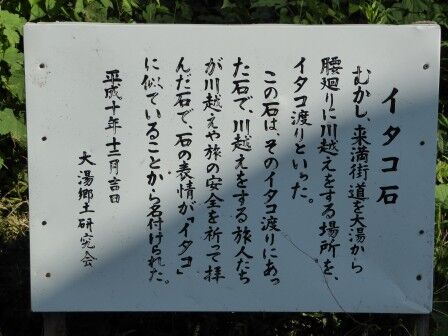 イタコ石
むかし、来満街道を大湯から
腰廻りに川越えをする場所を、
イタコ渡りといった。
この石は、そのイタコ渡りにあっ
た石で、川越えをする旅人たち
が川越えや旅の安全を祈って拝
んだ石で、石の表情が「イタコ」
に似ていることから名付けられた。
平成十年十二月吉日
大湯郷土研究会